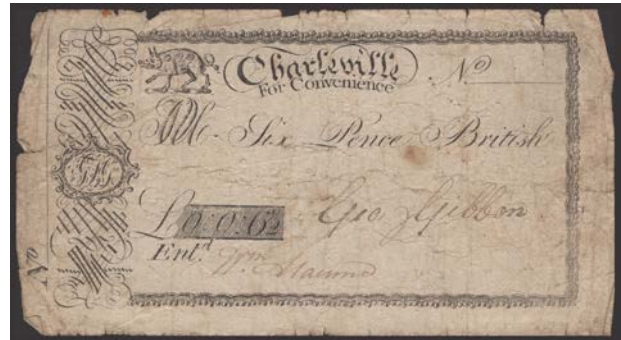 Charleville Nº
For Convenience
Six Pence British
£0:0:6½ Geo Gibbon
Ent.d Wm.
Nº